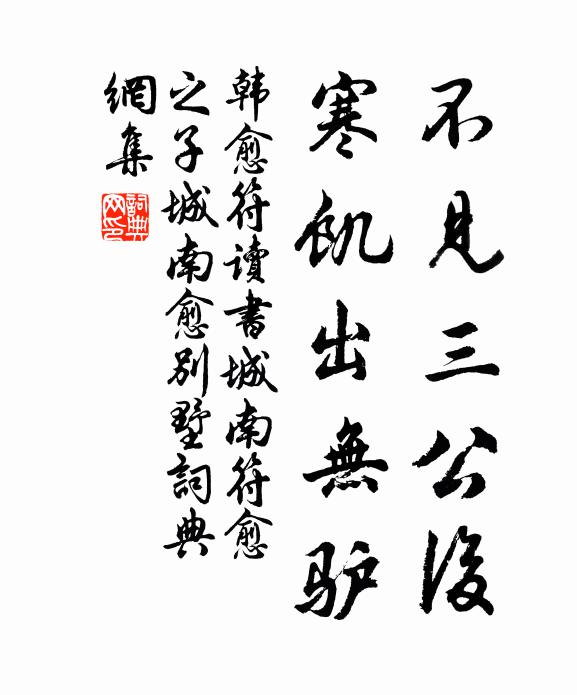 不見三公後
寒飢出無驴
韩愈符讀書城南符愈
之子城南愈别墅詞典
網集
詞典
网